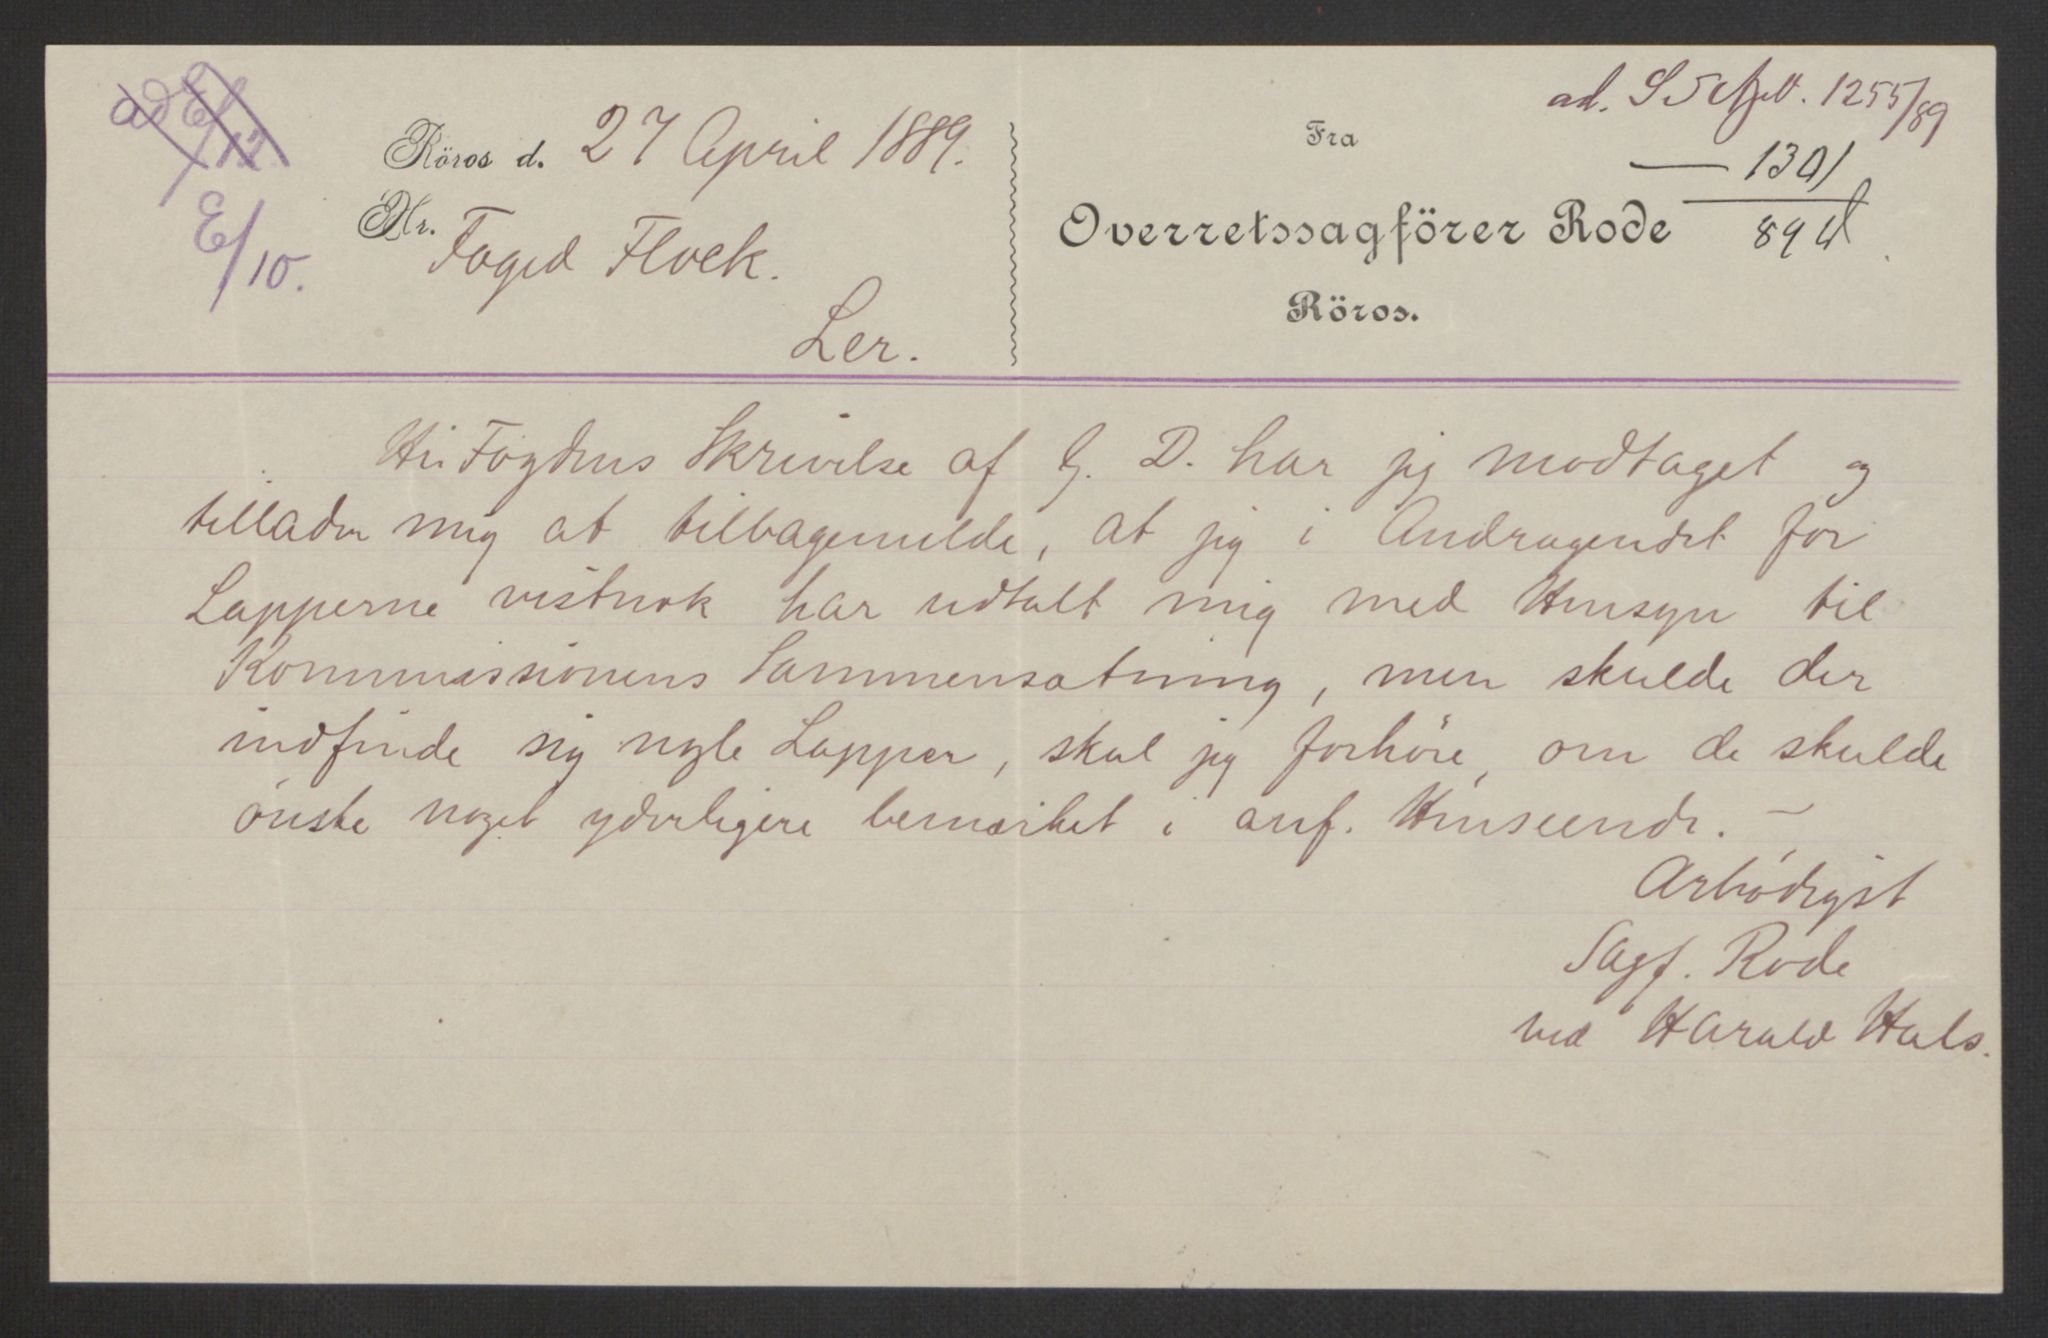 ad E/12
E/10.
Röros d. 27 April 1889.
Hr. Foged Flock.
Ler.
Fra
Overretssagförer Rode
Röros.
ad. 1255/89
— 1301
894
Hr. Fogdens Skrivelse af G. D. har jeg modtaget og
tillader mig at tilbagemelde, at jeg i Andragendet for
Lapperne vistnok har udtalt mig med Hensyn til
Kommissionens Sammensætning, men skulde der
indfinde sig nogle Lapper, skal jeg forhöre, om de skulde
önske noget yderligere bemærket i anf. Henseende. —
Ærbödigst
Sagf. Rode
ved Harald Hals.